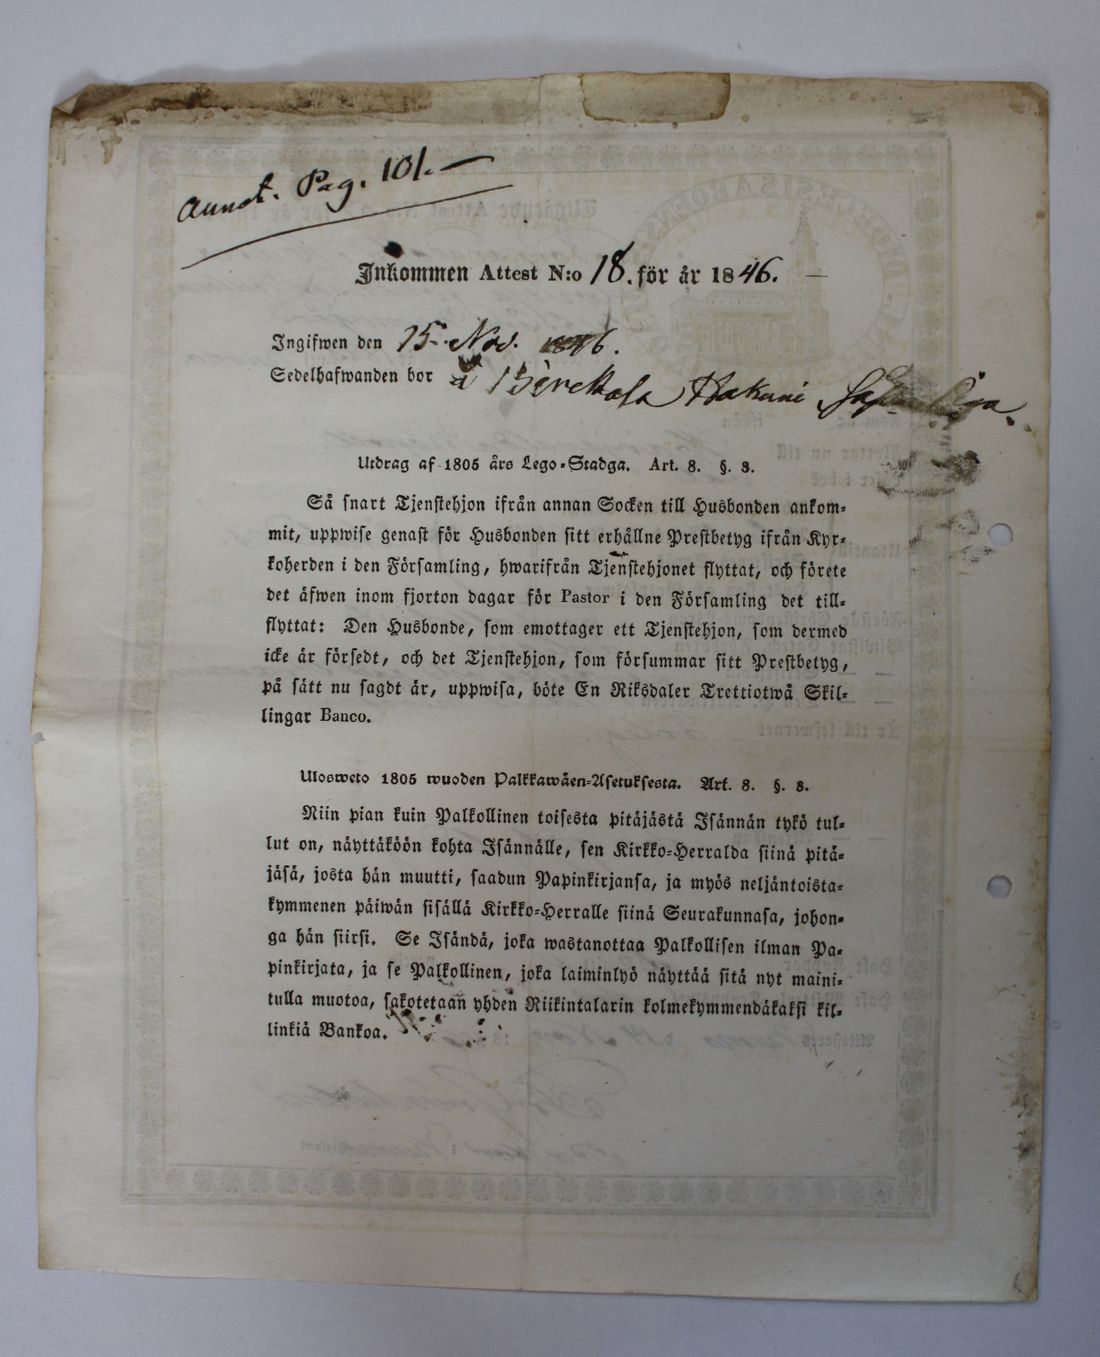 Annot. Pag. 101.
Inkommen Attest N:o 18. för år 1846.
Ingifwen den 15. Nov. 1846.
Sedelhafwanden bor i
Utdrag af 1805 års Lego-Stadga. Art. 8. §. 8.
Så snart Tjenstehjon ifrån annan Socken till Husbonden ankom-
mit, uppwise genast för Husbonden sitt erhållne Prestbetyg ifrån Kyr-
koherden i den Församling, hwarifrån Tjenstehjonet flyttat, och förete
det äfwen inom fjorton dagar för Pastor i den Församling det till-
flyttat: Den Husbonde, som emottager ett Tjenstehjon, som dermed
icke är försedt, och det Tjenstehjon, som försummar sitt Prestbetyg,
på sätt nu sagdt är, uppwisa, böte En Riksdaler Trettiotwå Skil-
lingar Banco.
Ulosweto 1805 wuoden Palkkawäen-Asetuksesta. Art. 8. §. 8.
Niin pian kuin Palkollinen toisesta pitäjästä Isännän tykö tul-
lut on, näyttäköön kohta Isännälle, sen Kirkko-Herralda siinä pitä-
jäsä, josta hän muutti, saadun Papinkirjansa, ja myös neljäntoista-
kymmenen päiwän sisällä Kirkko-Herralle siinä Seurakunnasa, johon-
ga hän siirsi. Se Isändä, joka wastanottaa Palkollisen ilman Pa-
pinkirjata, ja se Palkollinen, joka laiminlyö näyttää sitä nyt maini-
tulla muotoa, sakotetaan yhden Riikintalarin kolmekymmendäkaksi kil-
linkiä Bankoa.